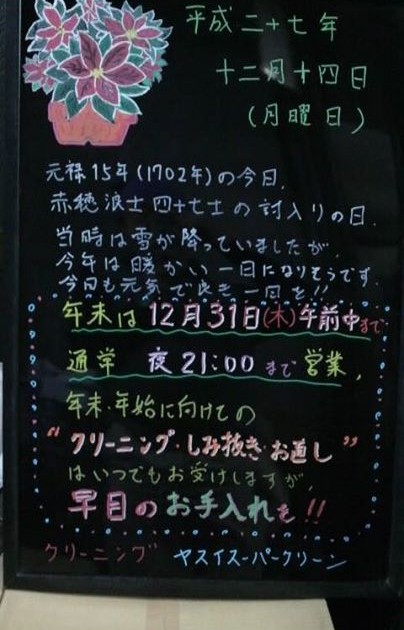 平成二十七年
十二月十四日
(月曜日)
元禄15年(1702年)の今日、
赤穂浪士四十七士の討入りの日。
当時は雪が降っていましたが、
今年は暖かい一日になりそうです。
今日も元気で良き一日を!!
年末は12月31日(木)午前中まで
通常 夜21:00まで営業、
年末・年始に向けての
“クリーニング・しみ抜き・お直し”
はいつでもお受けしますが、
早目のお手入れを!!
クリーニング ヤスイスーパークリーン